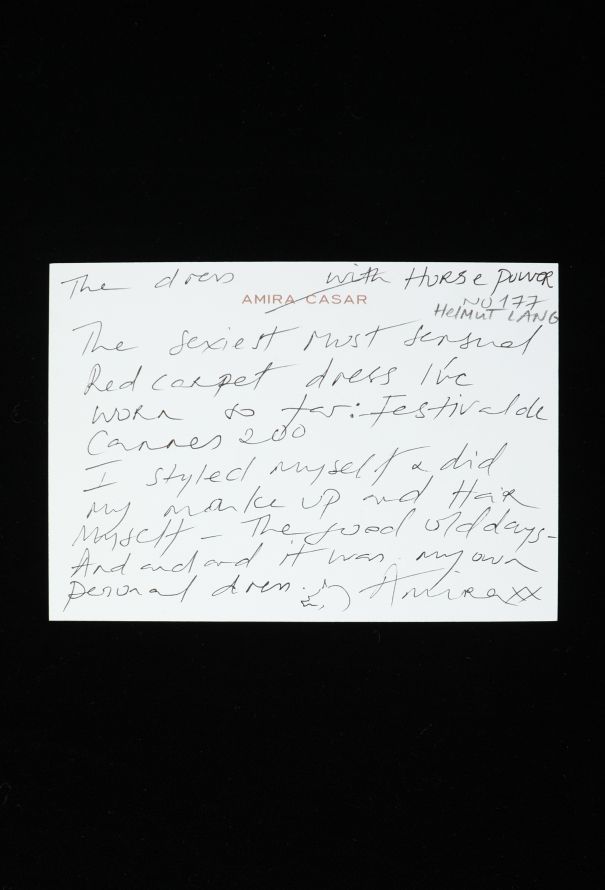 The dress with Horse power
AMIRA CASAR
NO 177
HELMUT LANG
The sexiest most sensual
Red carpet dress I've
worn so far: Festival de
Cannes 200
I styled myself & did
my make up and Hair
Myself - The good old days -
And and and it was my own
personal dress. Amira xx